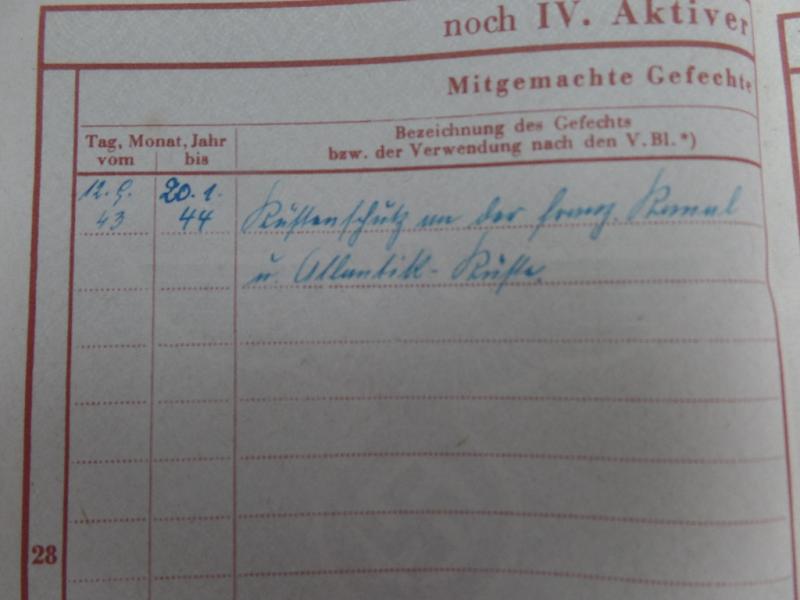 noch IV. Aktiver
Mitgemachte Gefechte
Tag, Monat, Jahr
vom bis
Bezeichnung des Gefechts
bzw. der Verwendung nach den V. Bl. *)
12. 9. 20. 1.
43 44 Küstenschutz an der franz. Kanal
u. Atlantik-Küste.
28